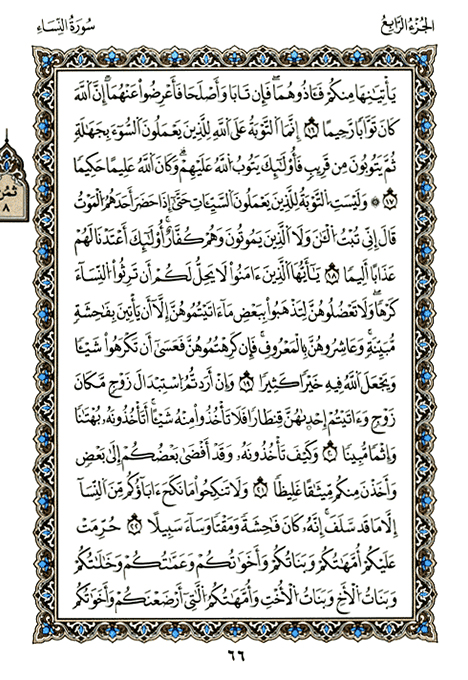 الجزء الرابع
سورة النساء
يَأْتِيَٰنِهَا مِنكُمْ فَـَٔاذُوهُمَا فَإِن تَابَا وَأَصْلَحَا فَأَعْرِضُواْ عَنْهُمَا إِنَّ ٱللَّهَ
كَانَ تَوَّابًا رَّحِيمًا ١٦ إِنَّمَا ٱلتَّوْبَةُ عَلَى ٱللَّهِ لِلَّذِينَ يَعْمَلُونَ ٱلسُّوٓءَ بِجَهَٰلَةٍ
ثُمَّ يَتُوبُونَ مِن قَرِيبٍ فَأُوْلَٰٓئِكَ يَتُوبُ ٱللَّهُ عَلَيْهِمْ وَكَانَ ٱللَّهُ عَلِيمًا حَكِيمًا
١٧ وَلَيْسَتِ ٱلتَّوْبَةُ لِلَّذِينَ يَعْمَلُونَ ٱلسَّيِّـَٔاتِ حَتَّىٰٓ إِذَا حَضَرَ أَحَدَهُمُ ٱلْمَوْتُ
قَالَ إِنِّي تُبْتُ ٱلْـَٰٔنَ وَلَا ٱلَّذِينَ يَمُوتُونَ وَهُمْ كُفَّارٌ أُوْلَٰٓئِكَ أَعْتَدْنَا لَهُمْ
عَذَابًا أَلِيمًا ١٨ يَٰٓأَيُّهَا ٱلَّذِينَ ءَامَنُواْ لَا يَحِلُّ لَكُمْ أَن تَرِثُواْ ٱلنِّسَآءَ
كَرْهًا وَلَا تَعْضُلُوهُنَّ لِتَذْهَبُواْ بِبَعْضِ مَآ ءَاتَيْتُمُوهُنَّ إِلَّآ أَن يَأْتِينَ بِفَٰحِشَةٍ
مُّبَيِّنَةٍ وَعَاشِرُوهُنَّ بِٱلْمَعْرُوفِ فَإِن كَرِهْتُمُوهُنَّ فَعَسَىٰٓ أَن تَكْرَهُواْ شَيْـًٔا
وَيَجْعَلَ ٱللَّهُ فِيهِ خَيْرًا كَثِيرًا ١٩ وَإِنْ أَرَدتُّمُ ٱسْتِبْدَالَ زَوْجٍ مَّكَانَ
زَوْجٍ وَءَاتَيْتُمْ إِحْدَىٰهُنَّ قِنطَارًا فَلَا تَأْخُذُواْ مِنْهُ شَيْـًٔا أَتَأْخُذُونَهُۥ بُهْتَٰنًا
وَإِثْمًا مُّبِينًا ٢٠ وَكَيْفَ تَأْخُذُونَهُۥ وَقَدْ أَفْضَىٰ بَعْضُكُمْ إِلَىٰ بَعْضٍ
وَأَخَذْنَ مِنكُم مِّيثَٰقًا غَلِيظًا ٢١ وَلَا تَنكِحُواْ مَا نَكَحَ ءَابَآؤُكُم مِّنَ ٱلنِّسَآ
إِلَّا مَا قَدْ سَلَفَ إِنَّهُۥ كَانَ فَٰحِشَةً وَمَقْتًا وَسَآءَ سَبِيلًا ٢٢ حُرِّمَتْ
عَلَيْكُمْ أُمَّهَٰتُكُمْ وَبَنَاتُكُمْ وَأَخَوَٰتُكُمْ وَعَمَّٰتُكُمْ وَخَٰلَٰتُكُمْ
وَبَنَاتُ ٱلْأَخِ وَبَنَاتُ ٱلْأُخْتِ وَأُمَّهَٰتُكُمُ ٱلَّٰتِيٓ أَرْضَعْنَكُمْ وَأَخَوَٰتُكُم
ثمن
٨
٦٦